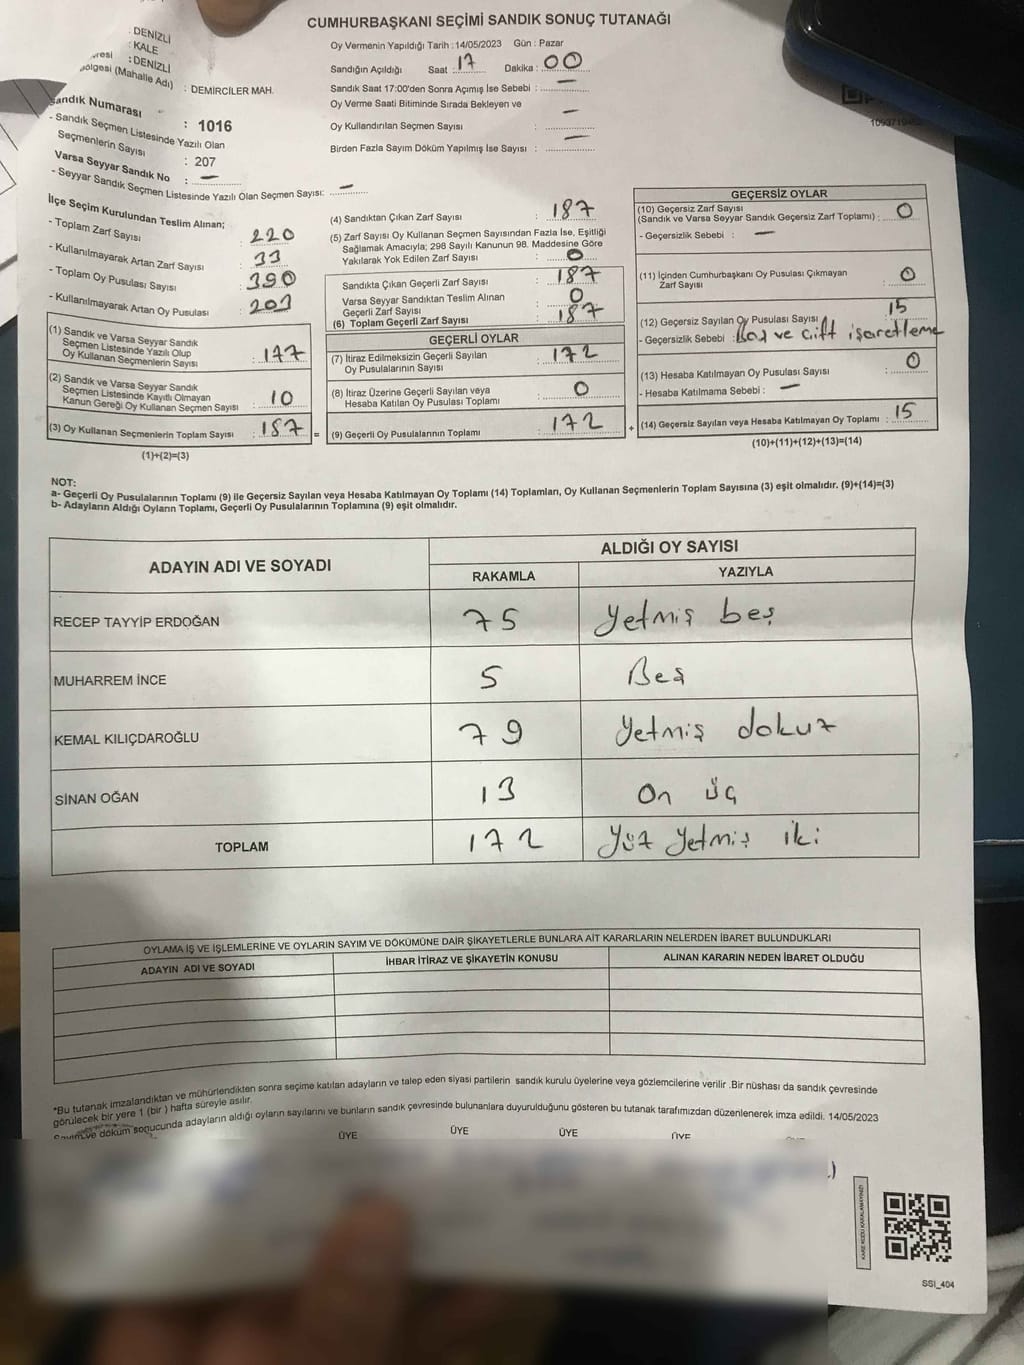 CUMHURBAŞKANI SEÇİMİ SANDIK SONUÇ TUTANAĞI
: DENİZLİ
: KALE
: DENİZLİ
(Mahalle Adı) : DEMİRCİLER MAH.
Sandık Numarası : 1016
- Sandık Seçmen Listesinde Yazılı Olan
Seçmenlerin Sayısı : 207
Varsa Seyyar Sandık No : —
- Seyyar Sandık Seçmen Listesinde Yazılı Olan Seçmen Sayısı: —
Oy Vermenin Yapıldığı Tarih : 14/05/2023 Gün : Pazar
Sandığın Açıldığı Saat : 17 Dakika : 00
Sandık Saat 17:00'den Sonra Açımış İse Sebebi : —
Oy Verme Saati Bitiminde Sırada Bekleyen ve
Oy Kullandırılan Seçmen Sayısı : —
Birden Fazla Sayım Döküm Yapılmış İse Sayısı : —
İlçe Seçim Kurulundan Teslim Alınan;
- Toplam Zarf Sayısı : 220
- Kullanılmayarak Artan Zarf Sayısı : 33
- Toplam Oy Pusulası Sayısı : 390
- Kullanılmayarak Artan Oy Pusulası : 203
(1) Sandık ve Varsa Seyyar Sandık
Seçmen Listesinde Yazılı Olup
Oy Kullanan Seçmenlerin Sayısı : 177
(2) Sandık ve Varsa Seyyar Sandık
Seçmen Listesinde Kayıtlı Olmayan
Kanun Gereği Oy Kullanan Seçmen Sayısı : 10
(3) Oy Kullanan Seçmenlerin Toplam Sayısı : 187 =
(1)+(2)=(3)
(4) Sandıktan Çıkan Zarf Sayısı : 187
(5) Zarf Sayısı Oy Kullanan Seçmen Sayısından Fazla İse, Eşitliği
Sağlamak Amacıyla; 298 Sayılı Kanunun 98. Maddesine Göre
Yakılarak Yok Edilen Zarf Sayısı : 0
Sandıkta Çıkan Geçerli Zarf Sayısı : 187
Varsa Seyyar Sandıktan Teslim Alınan
Geçerli Zarf Sayısı : 0
(6) Toplam Geçerli Zarf Sayısı : 187
GEÇERLİ OYLAR
(7) İtiraz Edilmeksizin Geçerli Sayılan
Oy Pusulalarının Sayısı : 172
(8) İtiraz Üzerine Geçerli Sayılan veya
Hesaba Katılan Oy Pusulası Toplamı : 0
(9) Geçerli Oy Pusulalarının Toplamı : 172 +
GEÇERSİZ OYLAR
(10) Geçersiz Zarf Sayısı
(Sandık ve Varsa Seyyar Sandık Geçersiz Zarf Toplamı) : 0
- Geçersizlik Sebebi : —
(11) İçinden Cumhurbaşkanı Oy Pusulası Çıkmayan
Zarf Sayısı : 0
(12) Geçersiz Sayılan Oy Pusulası Sayısı : 15
- Geçersizlik Sebebi : ve çift işaretleme
(13) Hesaba Katılmayan Oy Pusulası Sayısı : 0
- Hesaba Katılmama Sebebi : —
(14) Geçersiz Sayılan veya Hesaba Katılmayan Oy Toplamı : 15
(10)+(11)+(12)+(13)=(14)
NOT:
a- Geçerli Oy Pusulalarının Toplamı (9) ile Geçersiz Sayılan veya Hesaba Katılmayan Oy Toplamı (14) Toplamları, Oy Kullanan Seçmenlerin Toplam Sayısına (3) eşit olmalıdır. (9)+(14)=(3)
b- Adayların Aldığı Oyların Toplamı, Geçerli Oy Pusulalarının Toplamına (9) eşit olmalıdır.
ADAYIN ADI VE SOYADI
ALDIĞI OY SAYISI
RAKAMLA YAZIYLA
RECEP TAYYİP ERDOĞAN 75 Yetmiş beş
MUHARREM İNCE 5 Beş
KEMAL KILIÇDAROĞLU 79 Yetmiş dokuz
SİNAN OĞAN 13 On üç
TOPLAM 172 Yüz Yetmiş iki
OYLAMA İŞ VE İŞLEMLERİNE VE OYLARIN SAYIM VE DÖKÜMÜNE DAİR ŞİKAYETLERLE BUNLARA AİT KARARLARIN NELERDEN İBARET BULUNDUKLARI
ADAYIN ADI VE SOYADI İHBAR İTİRAZ VE ŞİKAYETİN KONUSU ALINAN KARARIN NEDEN İBARET OLDUĞU
*Bu tutanak imzalandıktan ve mühürlendikten sonra seçime katılan adayların ve talep eden siyasi partilerin sandık kurulu üyelerine veya gözlemcilerine verilir .Bir nüshası da sandık çevresinde
görülecek bir yere 1 (bir ) hafta süreyle asılır.
ve döküm sonucunda adayların aldığı oyların sayılarını ve bunların sandık çevresinde bulunanlara duyurulduğunu gösteren bu tutanak tarafımızdan düzenlenerek imza edildi. 14/05/2023
ÜYE ÜYE ÜYE ÜYE
KARE KODU KARALAMAYINIZ!
SSI_404